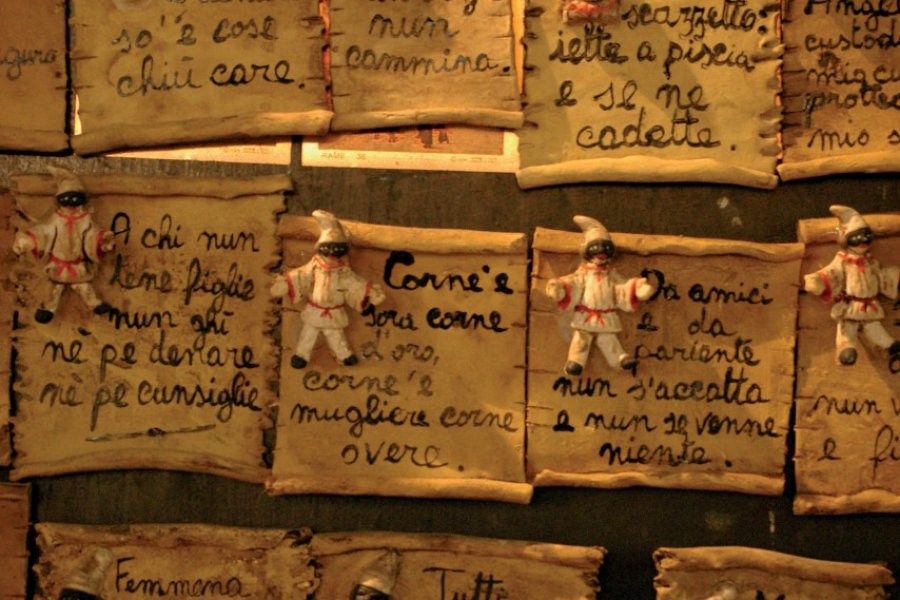 so' 'e cose
chiù care.
nun
cammina.
scazzetto:
jette a piscià
e se ne
cadette.
custod
mio s
A chi nun
tene figlie
nun ghì
nè pe denare
nè pe cunsiglie
Corne 'e
sora corne
d'oro,
corne 'e
mugliere corne
overe.
Da amici
e da
pariente
nun s'accatta
e nun se venne
niente.
nun v
e fi
Femmena
Tutti